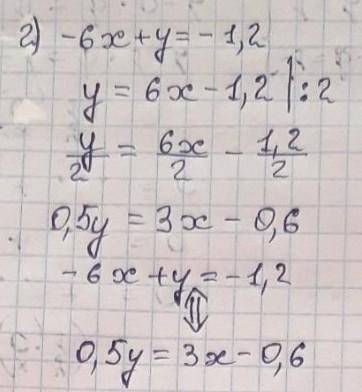 2) -6x+y=-1,2
y = 6x-1,2 |:2
y/2 = 6x/2 - 1,2/2
0,5y = 3x - 0,6
-6x+y=-1,2
⇕
0,5y = 3x-0,6